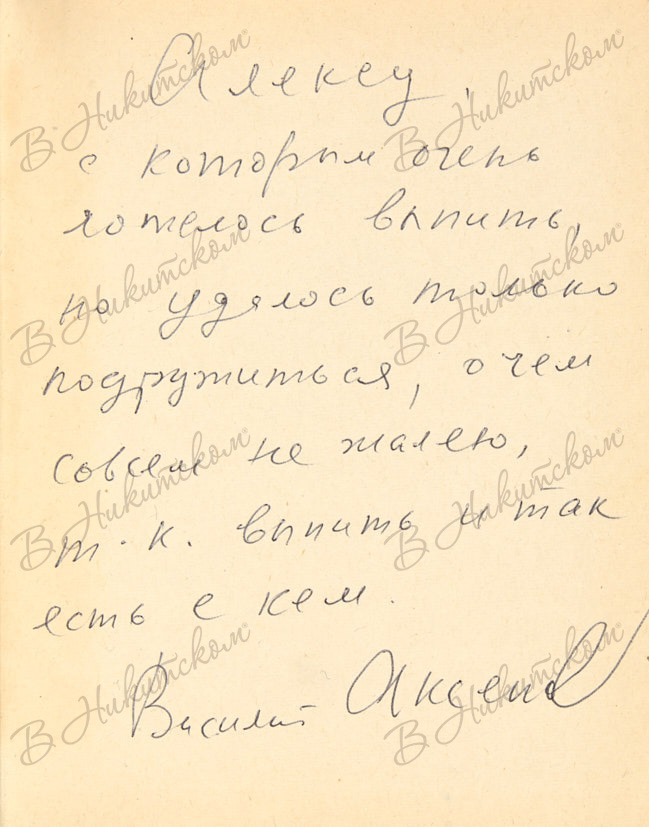 Алексу,
с которым очень
хотелось выпить,
но удалось только
подружиться, о чем
совсем не жалею,
т.к. выпить и так
есть с кем.
Василий Аксенов
В Никитском
В Никитском
В Никитском
В Никитском
В Никитском
В Никитском
В Никитском
В Никитском